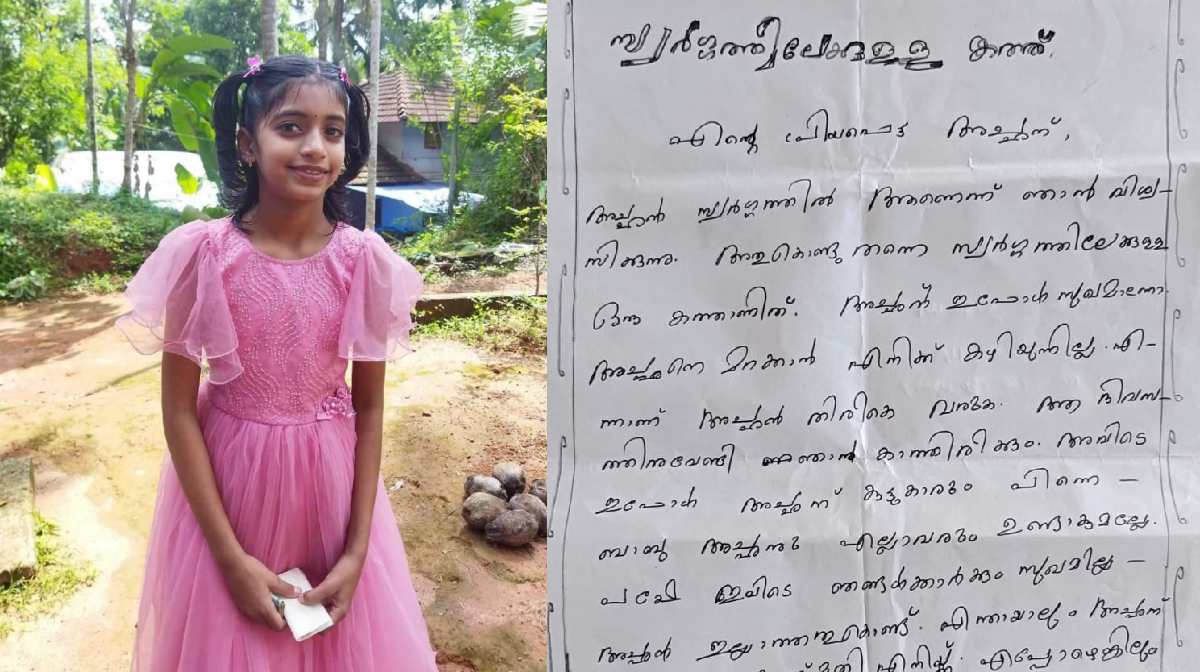 സ്വർഗ്ഗത്തിലേക്കുള്ള കത്ത്.
എന്റെ പ്രിയപ്പെട്ട അച്ഛന്,
അച്ഛൻ സ്വർഗ്ഗത്തിൽ ആണെന്ന് ഞാൻ വിശ്വ-
സിക്കുന്നു. അതുകൊണ്ടുതന്നെ സ്വർഗ്ഗത്തിലേക്കുള്ള
ഒരു കത്താണിത്. അച്ഛന് ഇപ്പോൾ സുഖമാണോ.
അച്ഛനെ മറക്കാൻ എനിക്ക് കഴിയുന്നില്ല. എ-
ന്നാണ് അച്ഛൻ തിരികെ വരുക. ആ ദിവസ-
ത്തിനുവേണ്ടി ഞാൻ കാത്തിരിക്കും. അവിടെ
ഇപ്പോൾ അച്ഛന് കൂട്ടുകാരും പിന്നെ -
ബാബു അച്ഛനും എല്ലാവരും ഉണ്ടാകുമല്ലേ.
പക്ഷേ ഇവിടെ ഞങ്ങൾക്കാർക്കും സുഖമില്ല -
അച്ഛൻ ഇല്ലാത്തതുകൊണ്ട്. എന്തായാലും അച്ഛന്
എനിക്ക്. എപ്പോഴെങ്കിലും